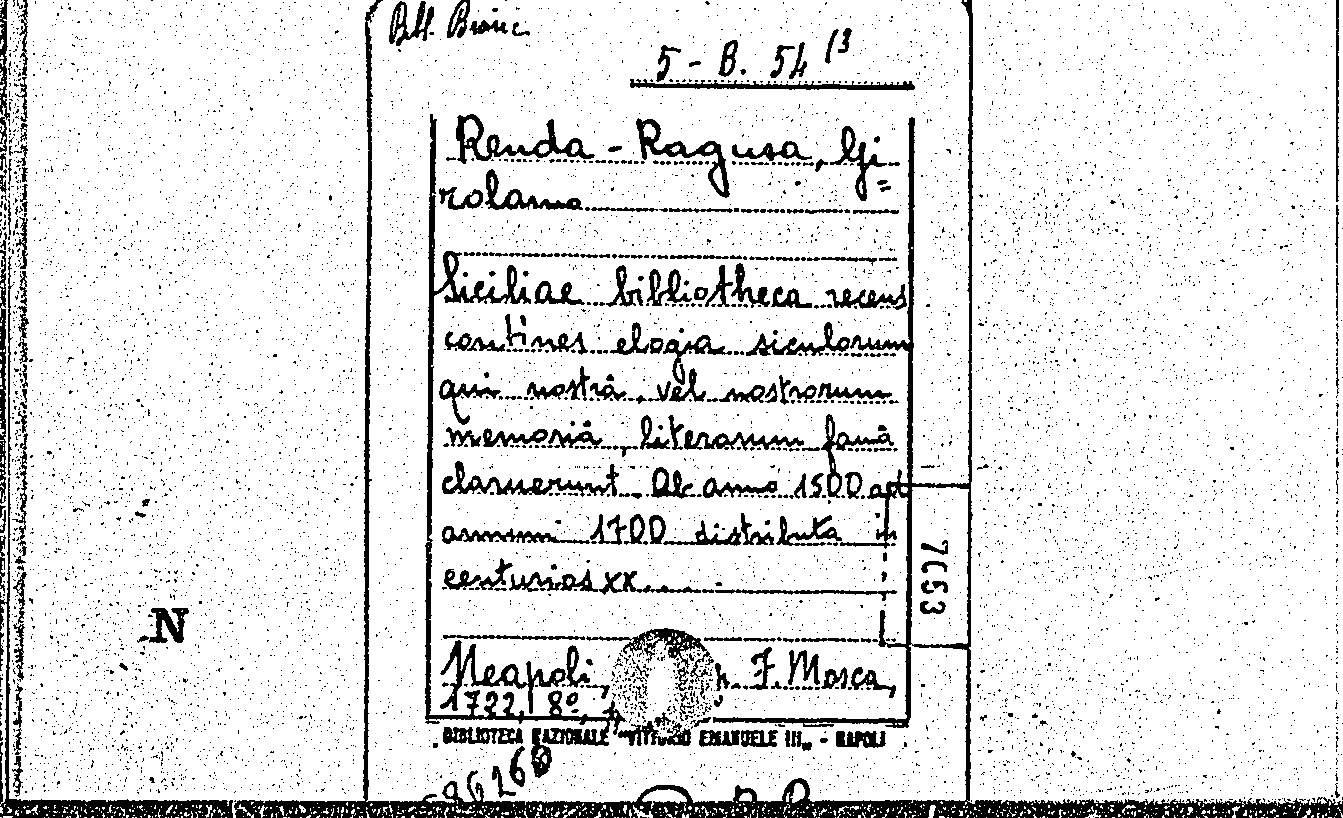 5 - B. 54 13
Renda - Ragusa, Gi=
rolamo
Siciliae bibliotheca recens
continens elogia siculorum
qui nostrâ, vel nostrorum
memoriâ, literarum famâ
claruerunt. Ab anno 1500 ad
annum 1700 distributa in
centurias XX....
7053
N
Neapoli, F. Mosca,
1722, 8º,
BIBLIOTECA NAZIONALE "VITTORIO EMANUELE III" - NAPOLI